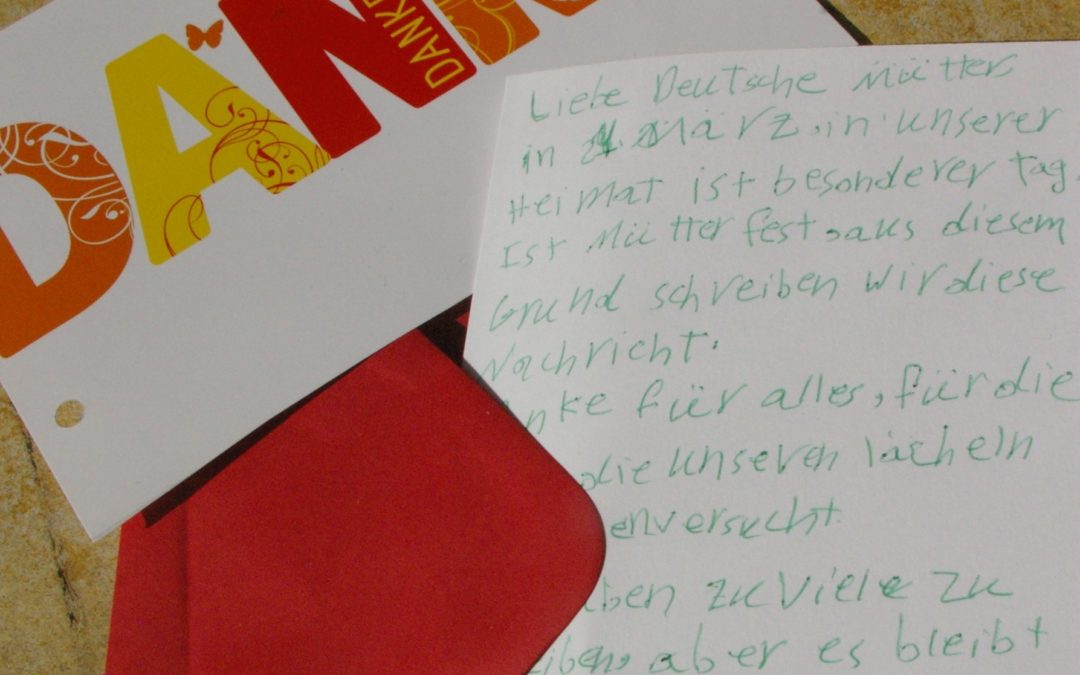 DANK
DANKE
Liebe Deutsche Mütter
in März, in unserer
Heimat ist besonderer Tag.
Ist Mütterfest, aus diesem
Grund schreiben wir diese
Nachricht.
nke für alles, für die
die unseren lächeln
enversucht
ben zu viele zu
iben, aber es bleibt